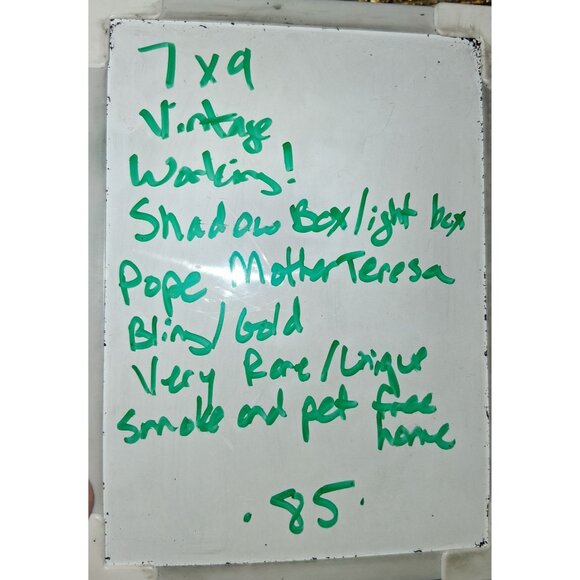 7 x 9
Vintage
Working!
Shadow Box/light box
Pope Mother Teresa
Bling/Gold
Very Rare/Unique
Smoke and pet free
home
.85.